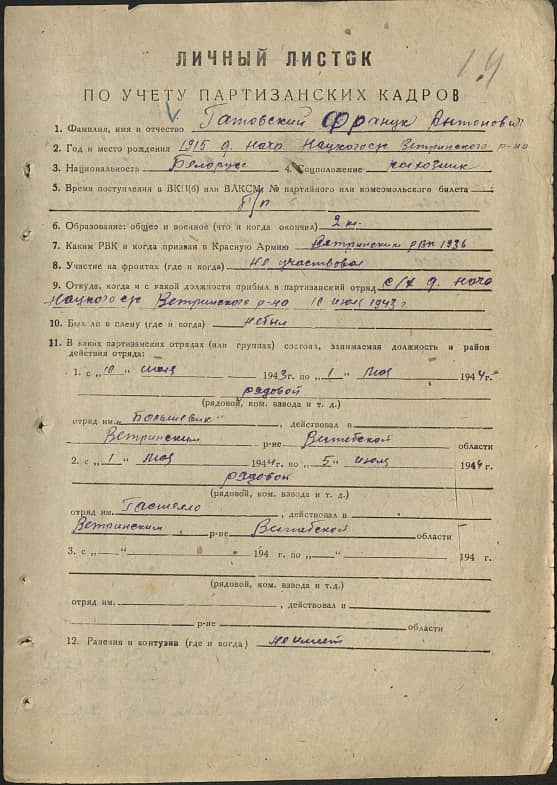 19
ЛИЧНЫЙ ЛИСТОК
ПО УЧЕТУ ПАРТИЗАНСКИХ КАДРОВ
1. Фамилия, имя и отчество Гатовский Франук Антонович
2. Год и место рождения 1915 д. Нача Нацкогос/с Ветринского р-на
3. Национальность Белорус 4. Соцположение колхозник
5. Время поступления в ВКП(б) или ВЛКСМ, № партийного или комсомольского билета
б/п
6. Образование: общее и военное (что и когда окончил) 2 кл.
7. Каким РВК и когда призван в Красную Армию Ветринским РВК 1936
8. Участие на фронтах (где и когда) не участвовал
9. Откуда, когда и с какой должности прибыл в партизанский отряд с/х д. Нача
Нацкогос/с Ветринского р-на 10 июля 1943 г.
10. Был ли в плену (где и когда) небыл
11. В каких партизанских отрядах (или группах) состоял, занимаемая должность и район
действия отряда:
1. с „10“ июля 1943г. по „1“ мая 1944г.
рядовой
(рядовой, ком. взвода и т. д.)
отряд им. "Большевик", действовал в
Ветринским р-не Витебской области
2. с „1“ мая 1944 г. по „5“ июля 1944 г.
рядовой
(рядовой, ком. взвода и т. д.)
отряд им. Гастелло, действовал в
Ветринским р-не Витебской области
3. с „ “ 194 г. по „ “ 194 г.
(рядовой, ком. взвода и т.д.)
отряд им. , действовал в
р-не области
12. Ранения и контузии (где и когда) не имеет